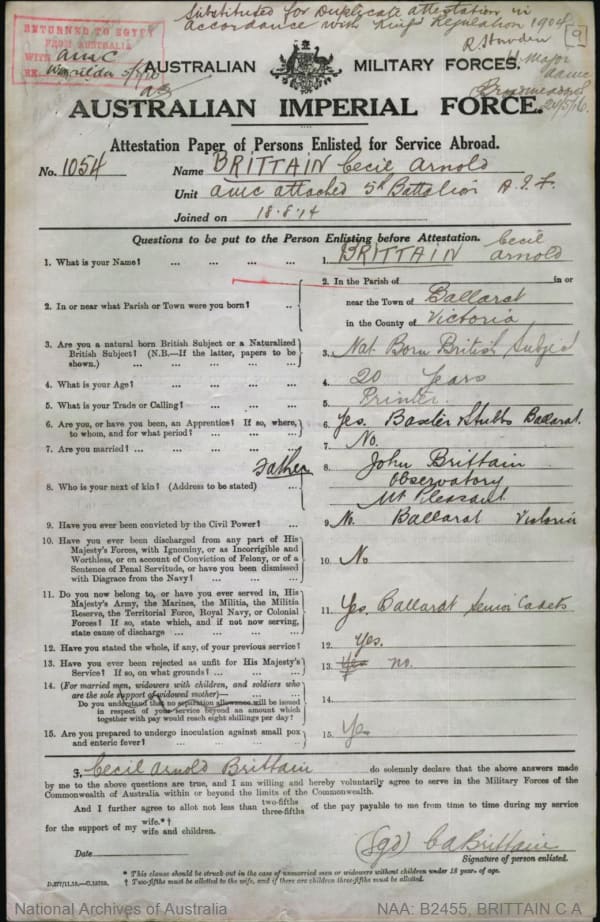 Substituted for Duplicate attestation in
accordance with King's Regulation 1904
[9]
RETURNED TO EGYPT
FROM AUSTRALIA
WITH AMC
Major
AAMC
Broadmeadows
20/5/16
AUSTRALIAN MILITARY FORCES.
AUSTRALIAN IMPERIAL FORCE.
Attestation Paper of Persons Enlisted for Service Abroad.
No. 1054 Name BRITTAIN Cecil Arnold
Unit AMC attached 5th Battalion A.I.F.
Joined on 18.8.14
Questions to be put to the Person Enlisting before Attestation.
1. What is your Name? ... ... ... ... 1. BRITTAIN Cecil Arnold
2. In or near what Parish or Town were you born? ... 2. In the Parish of in or
near the Town of Ballarat
in the County of Victoria
3. Are you a natural born British Subject or a Naturalized
British Subject? (N.B.—If the latter, papers to be
shown.) ... ... ... ... 3. Nat. Born British Subject
4. What is your Age? ... ... ... ... 4. 20 Years
5. What is your Trade or Calling? ... ... ... 5. Printer.
6. Are you, or have you been, an Apprentice? If so, where,
to whom, and for what period? ... ... ... 6. Yes. Baxter & Stubbs Ballarat.
7. Are you married? ... ... ... ... 7. No.
Father
8. Who is your next of kin? (Address to be stated) ... 8. John Brittain
Observatory
Mt Pleasant
Ballarat Victoria
9. Have you ever been convicted by the Civil Power? ... 9. No.
10. Have you ever been discharged from any part of His
Majesty's Forces, with Ignominy, or as Incorrigible and
Worthless, or on account of Conviction of Felony, or of a
Sentence of Penal Servitude, or have you been dismissed
with Disgrace from the Navy? ... ... ... 10. No
11. Do you now belong to, or have you ever served in, His
Majesty's Army, the Marines, the Militia, the Militia
Reserve, the Territorial Force, Royal Navy, or Colonial
Forces? If so, state which, and if not now serving,
state cause of discharge ... ... ... ... 11. Yes. Ballarat Senior Cadets
12. Have you stated the whole, if any, of your previous service? 12. Yes.
13. Have you ever been rejected as unfit for His Majesty's
Service? If so, on what grounds? ... ... ... 13. Yes no.
14. (For married men, widowers with children, and soldiers who
are the sole support of widowed mother)— ... ...
Do you understand that no separation allowance will be issued
in respect of your service beyond an amount which
together with pay would reach eight shillings per day? 14.
15. Are you prepared to undergo inoculation against small pox
and enteric fever? ... ... ... ... 15. Yes
I, Cecil Arnold Brittain do solemnly declare that the above answers made
by me to the above questions are true, and I am willing and hereby voluntarily agree to serve in the Military Forces of the
Commonwealth of Australia within or beyond the limits of the Commonwealth.
And I further agree to allot not less than two-fifths three-fifths of the pay payable to me from time to time during my service
for the support of my wife.*† wife and children.
Date
(sgd) C A Brittain
Signature of person enlisted.
* This clause should be struck out in the case of unmarried men or widowers without children under 18 years of age.
† Two-fifths must be allotted to the wife, and if there are children three-fifths must be allotted.
National Archives of Australia
NAA: B2455, BRITTAIN C A